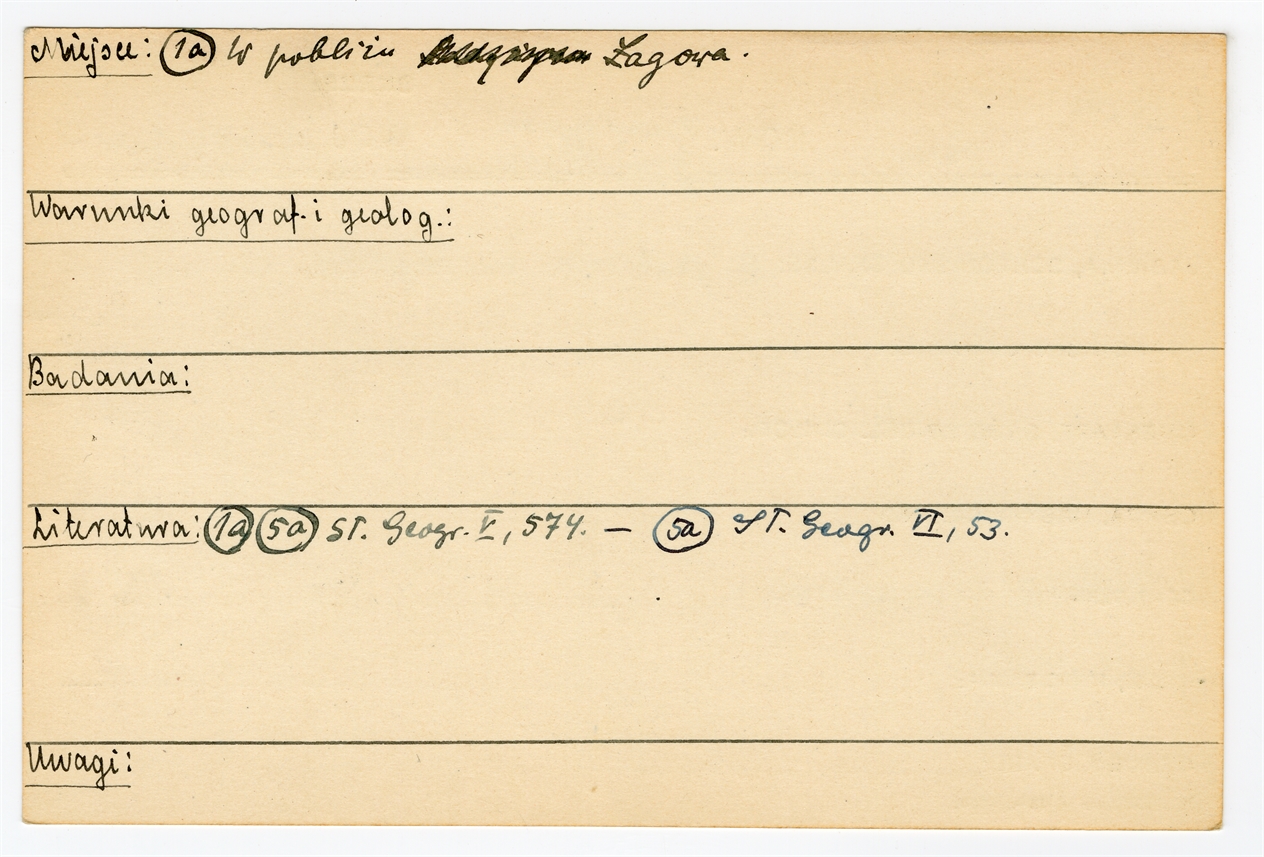 Miejsce: 1a W pobliżu Łagowa.
Warunki geograf. i geolog.:
Badania:
Literatura: 1a 5a St. Geogr. V, 574. — 5a ST. Geogr. VI, 53.
Uwagi: